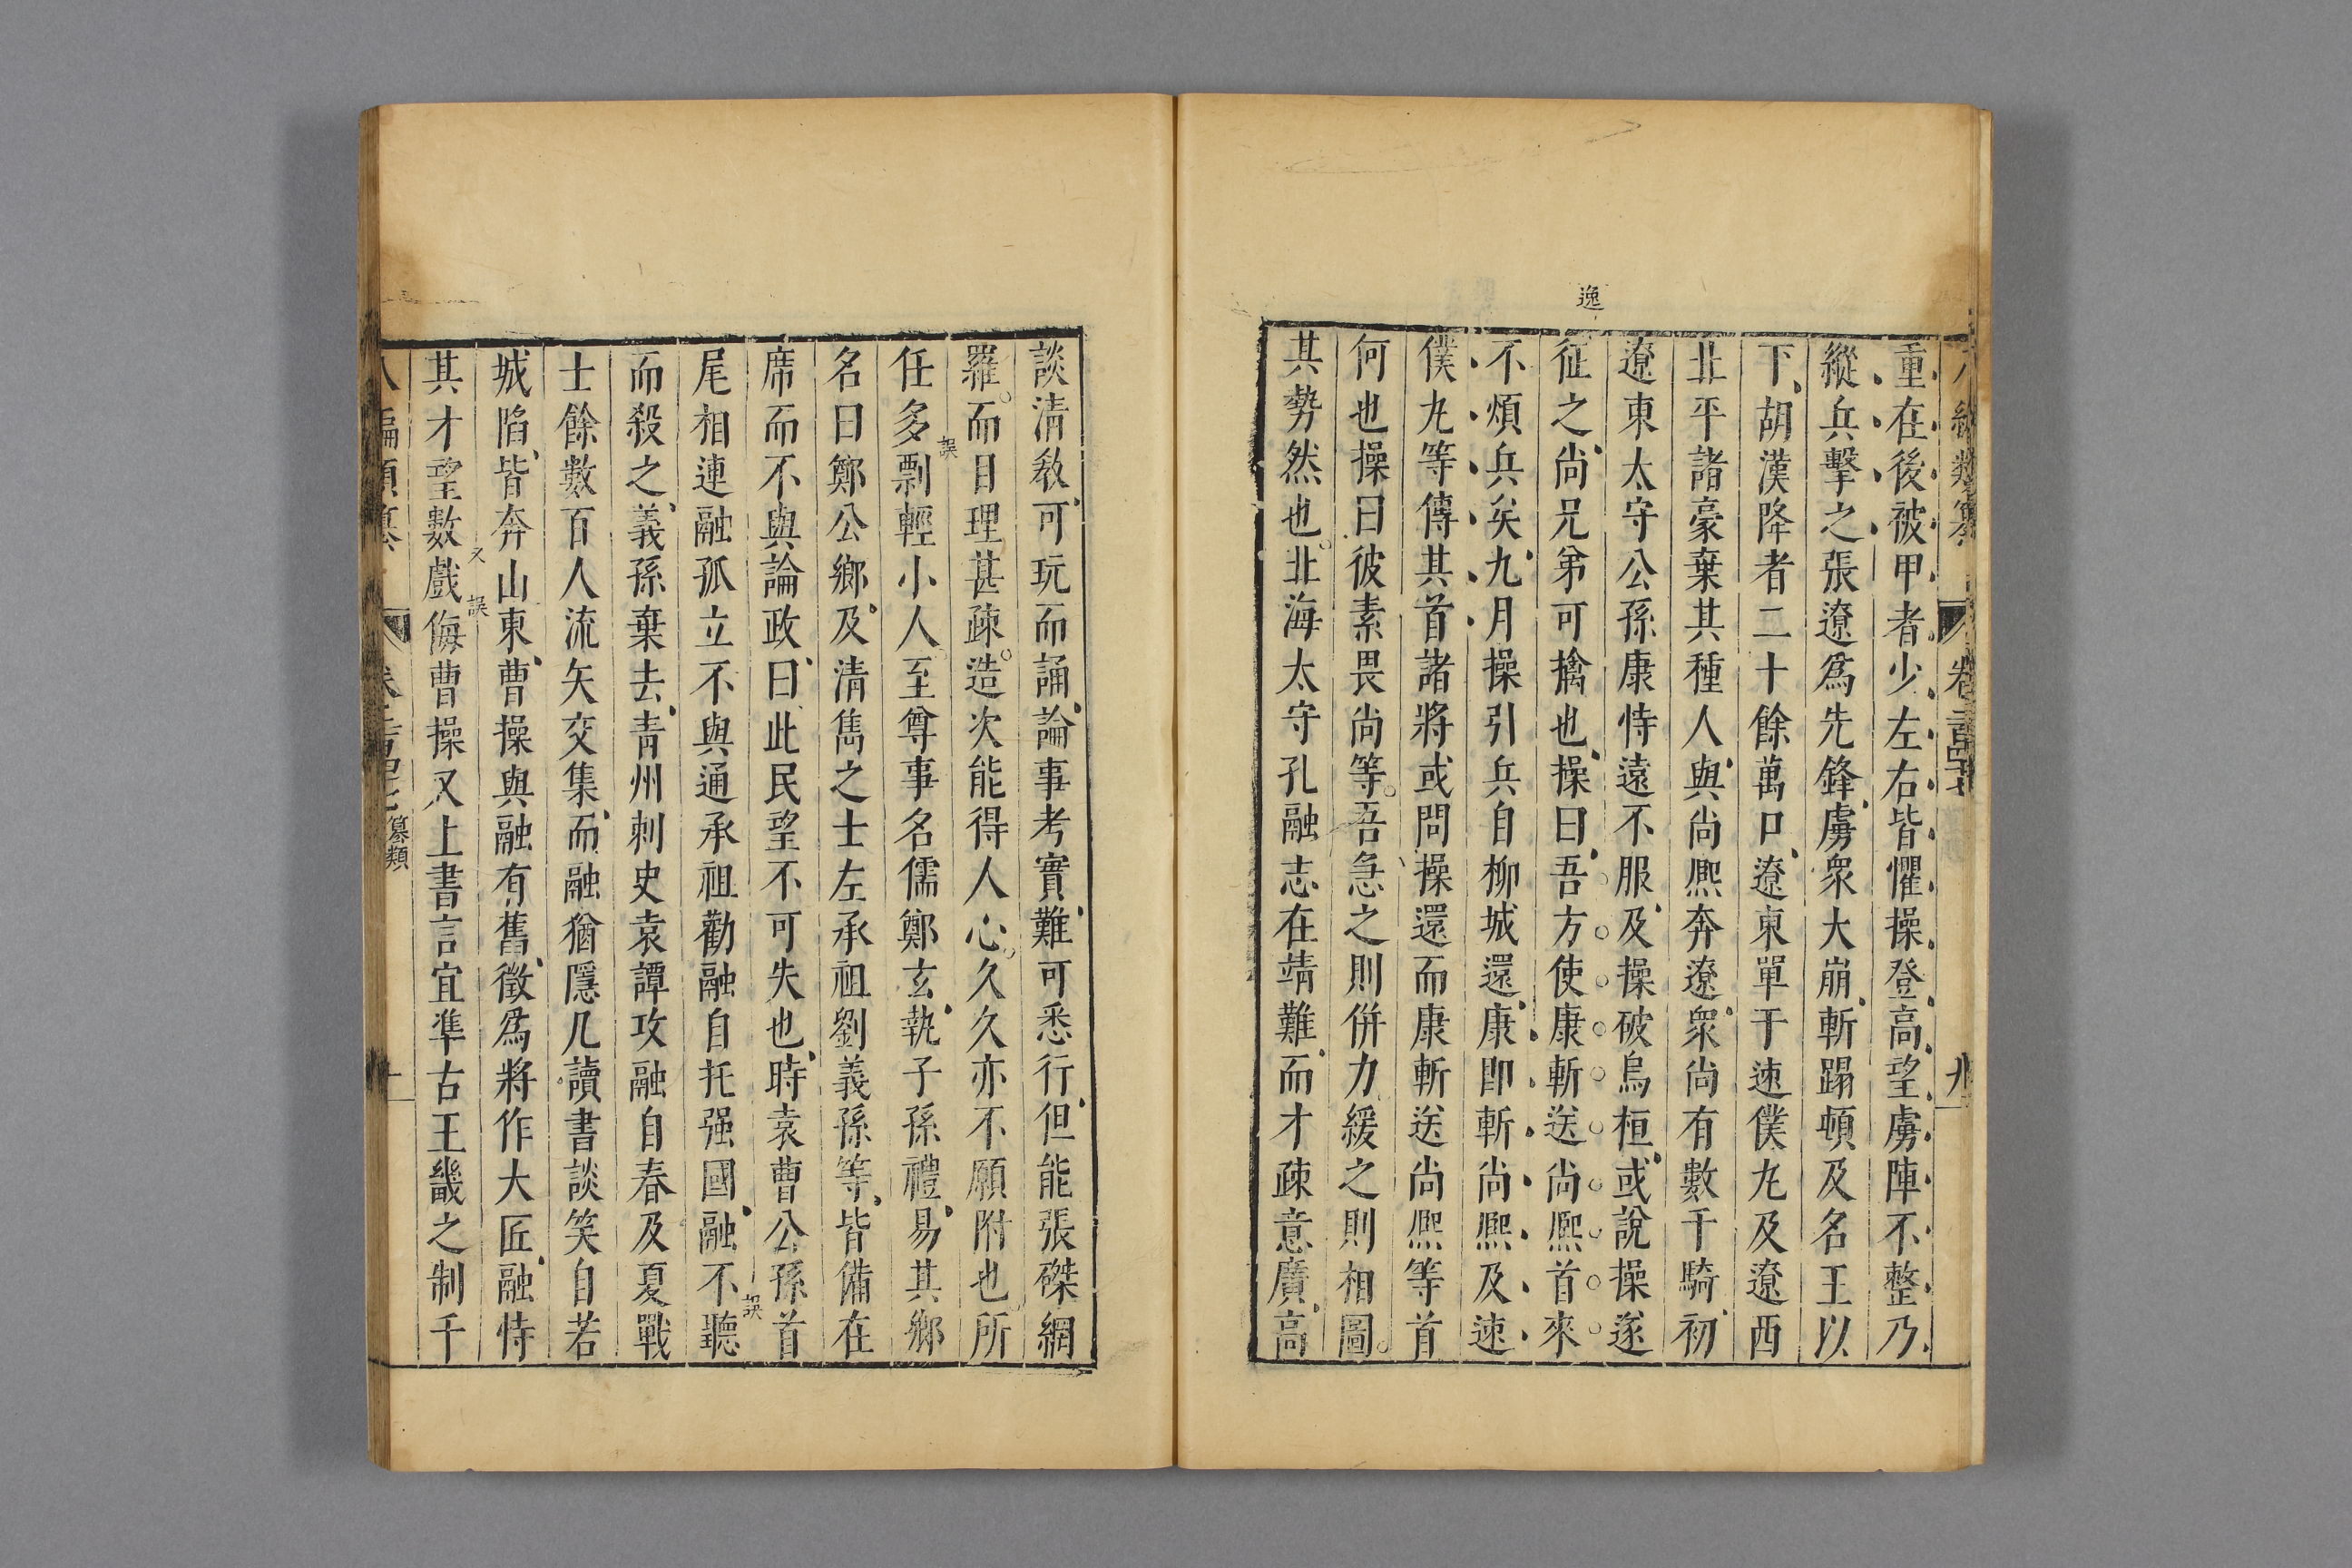 逸
重在後被甲者少左右皆懼操登高望虜陣不整乃
縱兵擊之張遼爲先鋒虜衆大崩斬蹋頓及名王以
下胡漢降者二十餘萬口遼東單于速僕丸及遼西
北平諸豪棄其種人與尚熈奔遼衆尚有數千騎初
遼東太守公孫康恃遠不服及操破烏桓或說操遂
征之尚兄弟可擒也操曰吾方使康斬送尚熈首來
不煩兵矣九月操引兵自柳城還康即斬尚熈及速
僕丸等傳其首諸將或問操還而康斬送尚熈等首
何也操曰彼素畏尚等吾急之則併力緩之則相圖
其勢然也北海太守孔融志在靖難而才疎意廣高
談清敎可玩而誦論事考實難可悉行但能張磔網
羅而目理甚疎造次能得人心久久亦不願附也所
任多剽輕小人至尊事名儒鄭玄執子孫禮易其鄉
誤
名曰鄭公鄉及清雋之士左承祖劉義孫等皆備在
席而不與論政曰此民望不可失也時袁曹公孫首
尾相連融孤立不與通承祖勸融自托强國融不聽
誤
而殺之義孫棄去青州刺史袁譚攻融自春及夏戰
士餘數百人流矢交集而融猶隱几讀書談笑自若
城陷皆奔山東曹操與融有舊徵爲將作大匠融恃
其才望數戲侮曹操又上書言宜準古王畿之制千
又誤
編類纂
纂類